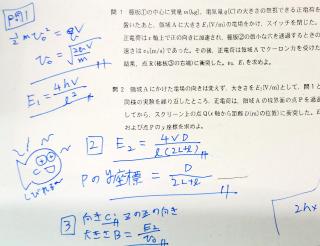 問1
½mv₀² = qV
v₀ = √(2qV/m)
E₁ = 4hV/ℓ²
問1 極板①の中心に質量m(kg)、電気量q(C)の大きさの無視できる正電荷を
置いたあと、領域AにE₁(V/m)の電場をかけ、スイッチを閉じた。
正電荷はx軸上で正の向きに加速され、極板②の細い小穴を通過するときの
速さはv₀(m/s)であった。その後、正電荷は領域Aでクーロン力を受けた
結果、点R(極板③の右端)に衝突した。v₀、E₁を求めよ。
問2 領域Aにかけた電場の向きは変えず、大きさをE₂(V/m)として、問1と
同様の実験を繰り返したところ、正電荷は、領域Aの境界面の点Pを通過
してから、スクリーン上の点Q(x軸から距離D(m)の位置)に衝突した。E₂
および点Pのy座標を求めよ。
しびれる〜
2 E₂ = 4VD/ℓ(2L+ℓ)
Pのy座標 = D/2L+ℓ
3 向き C, A
大きさ B = E₂/v₀
2hx